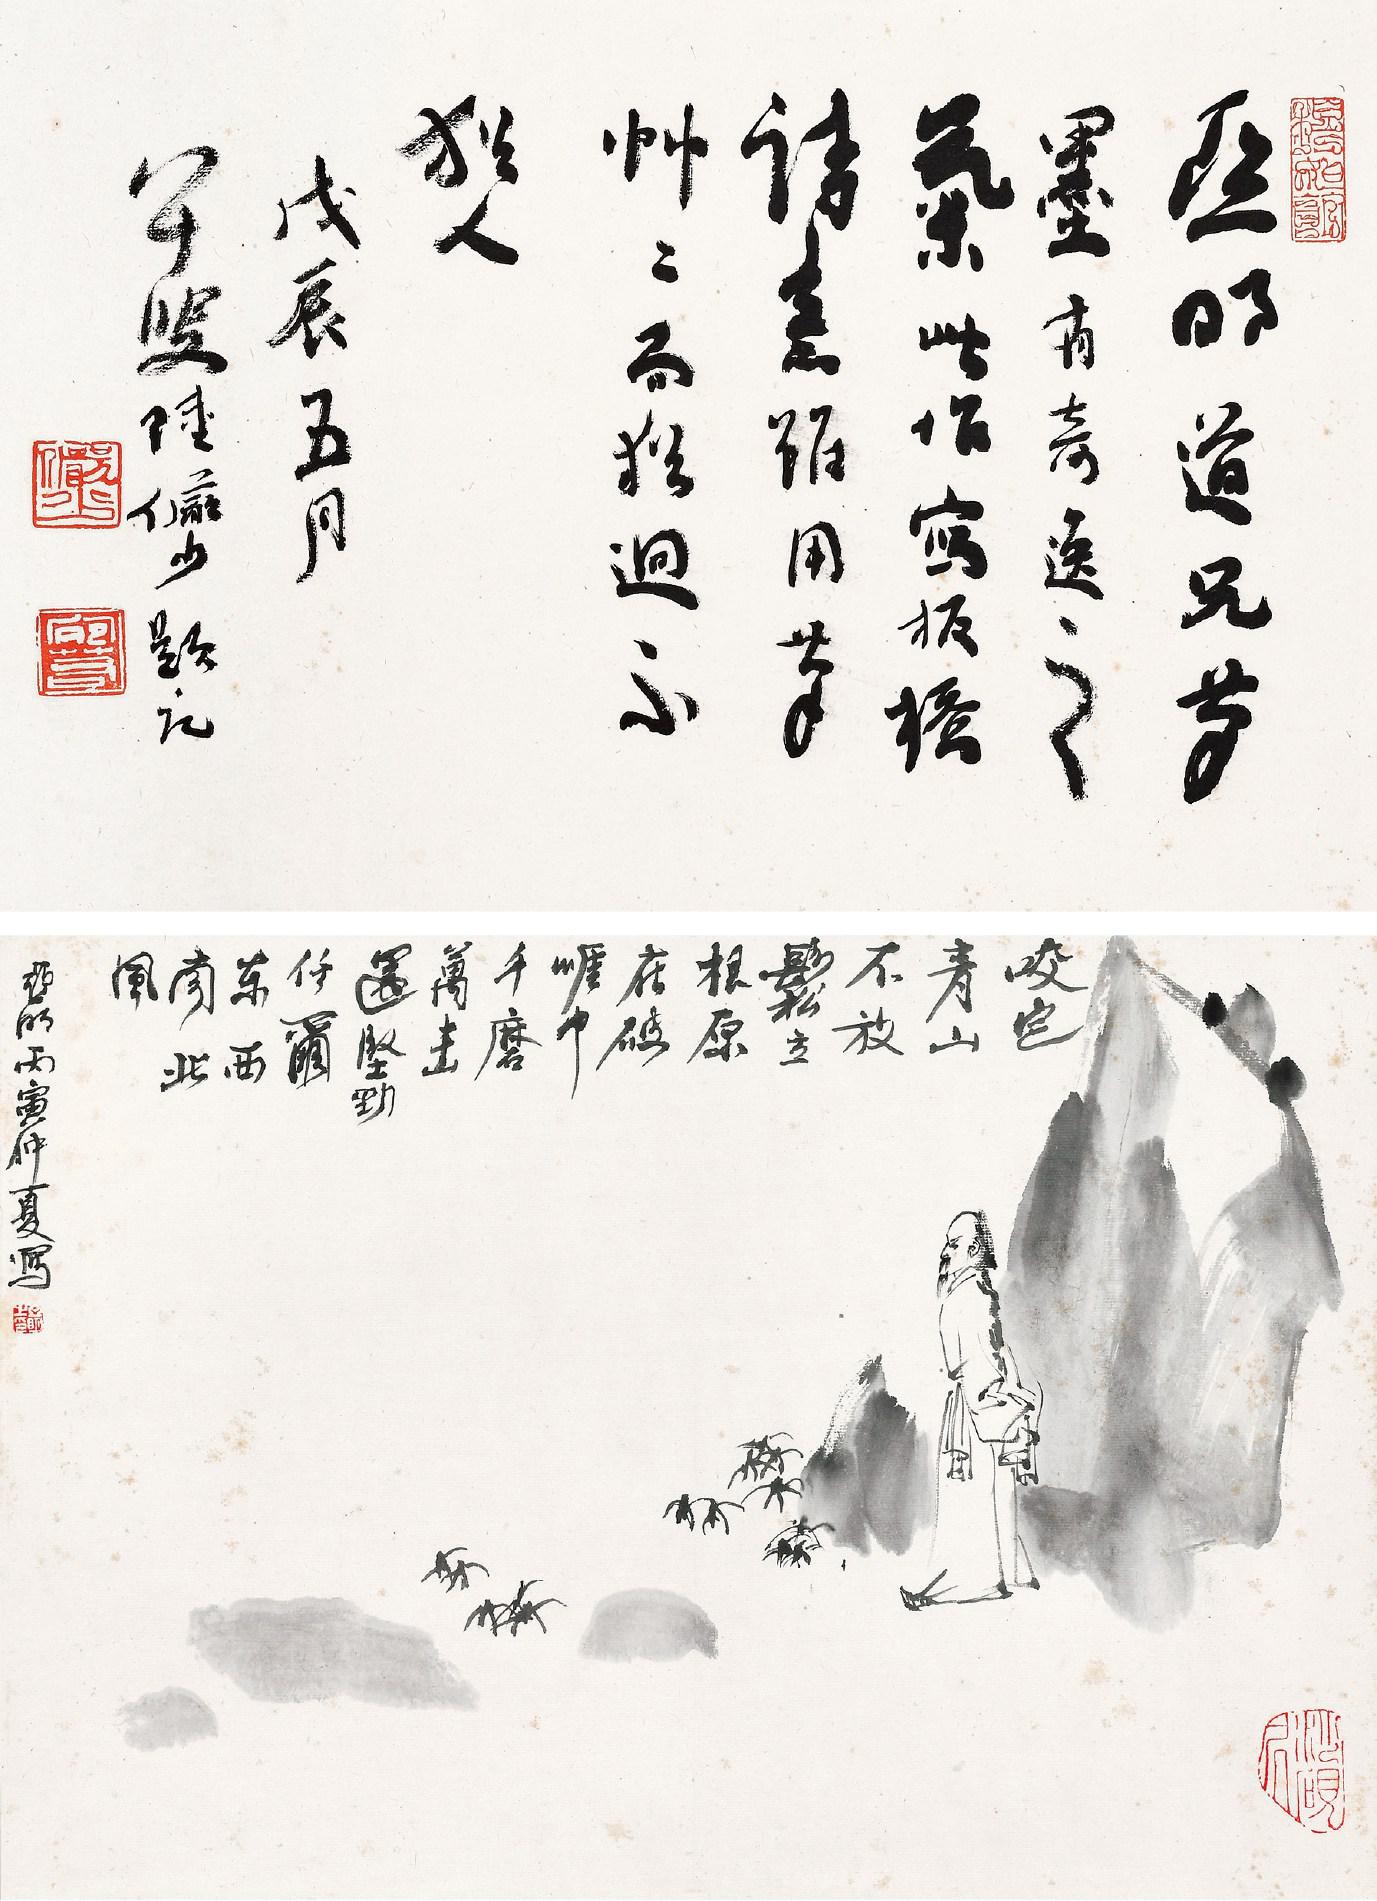 亞明道兄筆
墨有奇逸之
氣此帖寫板橋
詩意雖用筆
艸々而趣迥不
猶人
戊辰五月
宛叟陸儼少題記
咬定
青山
不放
鬆立
根原
在破
崕中
千磨
萬击
還堅勁
任爾
东西
南北
風
亚明丙寅仲夏寫
沙硯居